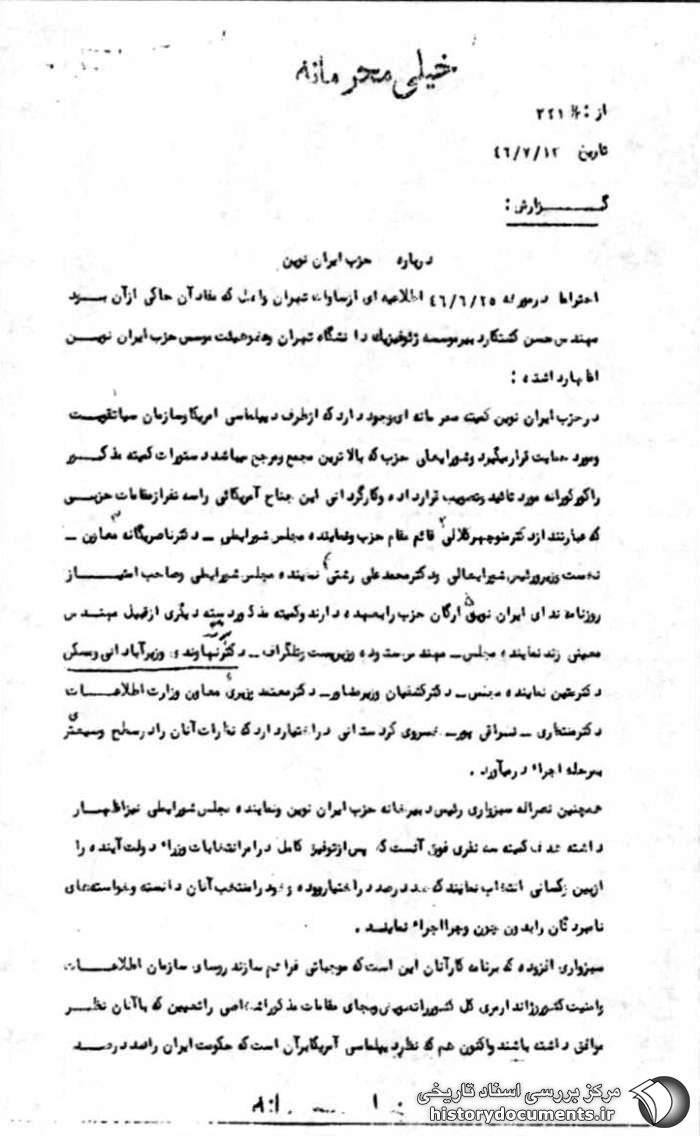 خیلی محرمانه
از : ۳۲۱
تاریخ ۴۶/۷/۱۲
گزارش :
درباره حزب ایران نوین
احتراما در مورخه ۴۶/۶/۲۵ اطلاعیه ای از ساواک تهران واصل که مفاد آن حاکی از آن بود
مهندس حسن کشتکار دبیر موسسه ژئوفیزیک دانشگاه تهران وعضو هیئت موسس حزب ایران نوین
اظهار داشته :
در حزب ایران نوین کمیته محرمانه ای وجود دارد که از طرف دیپلماسی امریکا وسازمان سیا تقویت
ومورد حمایت قرار میگیرد وشورایعالی حزب که بالاترین مجمع ومرجع میباشد دستورات کمیته مذکور
را کورکورانه مورد تائید وتصویب قرار داده وکارگردانی این جناح آمریکائی را سه نفر از مقامات حزبی
که عبارتند از دکتر منوچهر کلالی قائم مقام حزب ونماینده مجلس شورایملی ــ دکتر ناصر یگانه معاون ــ
نخست وزیر ورئیس شورایعالی ودکتر محمد علی رشتی نماینده مجلس شورایملی وصاحب امتیاز
روزنامه ندای ایران نوین ارگان حزب را بعهده دارند وکمیته مذکور دسته دیگری از قبیل مهندس
معینی زند نماینده مجلس ــ مهندس ستوده وزیر پست وتلگراف ــ دکتر نهاوندی وزیر آبادانی ومسکن
دکتر متین نماینده مجلس ــ دکتر کشفیان وزیر مشاور ــ دکتر معتمد وزیری معاون وزارت اطلاعات
دکتر منتظری ــ نصراتی پور ــ خسروی کردستانی در اختیار دارد که نظرات آنان را در سطح وسیعتر
بمرحله اجراء در میآورد .
همچنین نصراله سبزواری رئیس دبیرخانه حزب ایران نوین ونماینده مجلس شورایملی نیز اظهار
داشته هدف کمیته سه نفری فوق آنست که پس از توفیق کامل در امر انتخابات وزراء دولت آینده را
از بین کسانی انتخاب نمایند که صد در صد در اختیار بوده وخود را منتخب آنان دانسته وخواسته های
نامبردگان را بدون چون وچرا اجراء نمایند .
سبزواری افزوده که برنامه کار آنان این است که موجباتی فراهم سازند روسای سازمان اطلاعات
وامنیت کشور وژاندارمری کل کشور را تعویض وبجای مقامات مذکور اشخاصی را تعیین که با آنان نظر
موافق داشته باشند واکنون هم که نظر دیپلماسی آمریکا بر آن است که حکومت ایران را صد در صد
مرکز بررسی اسناد تاریخی
historydocuments.ir